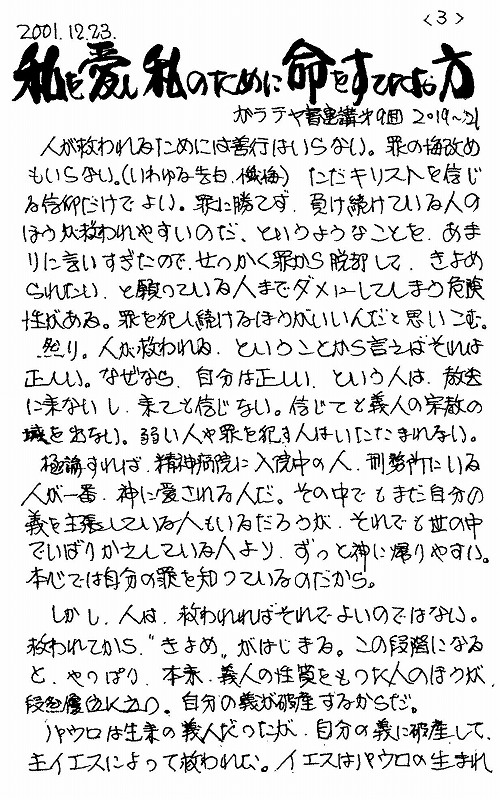 <3>
2001.12.23.
私を愛し私のために命をすてたお方
ガラテヤ書 講 9回 2の19〜21
人が救われるためには善行はいらない。罪の悔改め
もいらない。(いわゆる告白、懺悔) ただキリストを信じ
る信仰だけでよい。罪に勝てず、負け続けている人の
ほうが救われやすいのだ、というようなことを、あま
りに言いすぎたので、せっかく罪から脱却して、きよめ
られたい、と願っている人までダメにしてしまう危険
性がある。罪を犯し続けるほうがいいんだと思いこむ。
然り。人が救われる、ということから言えばそれは
正しい。なぜなら、自分は正しい、という人は、教会
に来ないし、来ても信じない。信じても義人の宗教の
域を出ない。弱い人や罪を犯す人はいたたまれない。
極論すれば、精神病院に入院中の人、刑務所にいる
人が一番、神に愛される人だ。その中でもまだ自分の
義を主張している人もいるだろうが、それでも世の中
でいばりかえしている人より、ずっと神に帰りやすい。
本心では自分の罪を知っているのだから。
しかし、人は、救われればそれでよいのではない。
救われてから、"きよめ"がはじまる。この段階になる
と、やっぱり、本来、義人の性質をもった人のほうが、
優位に立つ。自分の義が破産するからだ。
パウロは生来の義人だったが、自分の義に破産して、
主イエスによって救われた。イエスはパウロの生まれ